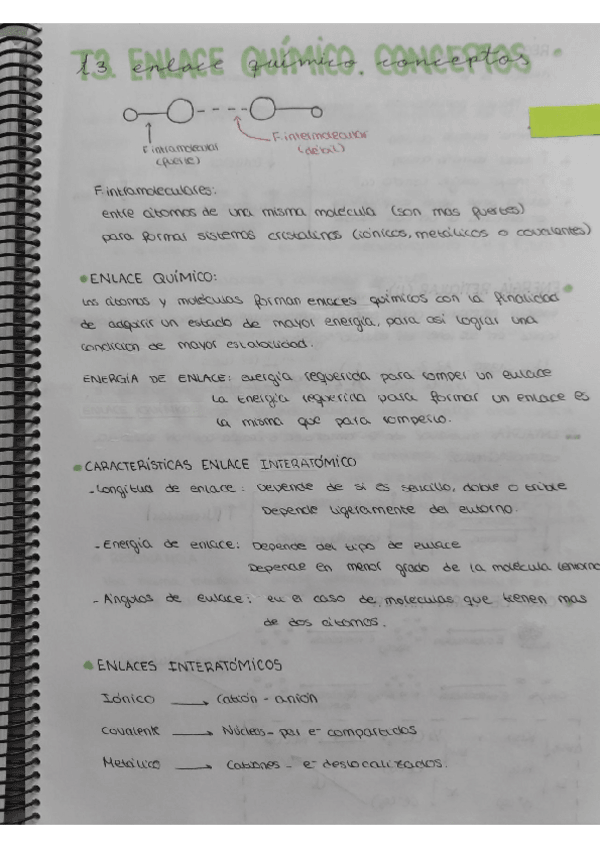 T3. ENLACE QUÍMICO. CONCEPTOS
t3 enlace químico. conceptos
F.intramolecular
(fuerte)
F.intermolecular
(débil)
F.intramoleculares:
entre átomos de una misma molécula (son mas fuertes)
para formar sistemas cristalinos (iónicos, metálicos o covalentes)
ENLACE QUÍMICO:
Los átomos y moléculas forman enlaces químicos con la finalidad
de adquirir un estado de mayor energía, para así lograr una
condición de mayor estabilidad.
ENERGÍA DE ENLACE: energía requerida para romper un enlace
La Energía requerida para formar un enlace es
la misma que para romperlo.
CARACTERÍSTICAS ENLACE INTERATÓMICO
-Longitud de enlace: Depende de si es sencillo, doble o trible
Depende ligeramente del entorno.
-Energía de enlace: Depende del tipo de enlace
Depende en menor grado de la molécula (entorno
-Ángulos de enlace: en el caso de moleculas que tienen mas
de dos átomos.
ENLACES INTERATÓMICOS
Iónico → Catión - anión
Covalente → Núcleos - par e- compartados
Metálico → Cationes - e- deslocalizados.